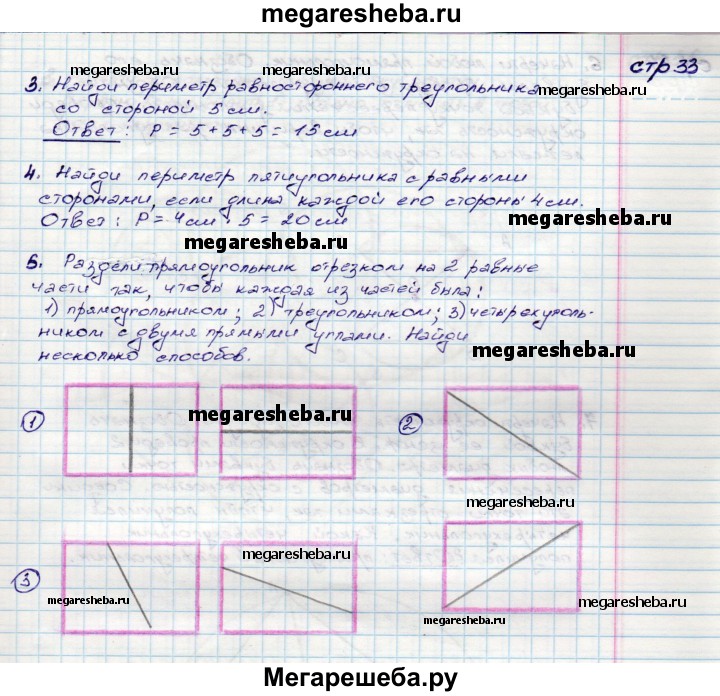 megaresheba.ru
стр 33
megaresheba.ru megaresheba.ru
3. Найди периметр равностороннего треугольника
megaresheba.ru
со стороной 5 см.
Ответ: P = 5 + 5 + 5 = 15 см
4. Найди периметр пятиугольника с равными
сторонами, если длина каждой его стороны 4 см.
Ответ: P = 4 см · 5 = 20 см
megaresheba.ru
megaresheba.ru
5. Раздели прямоугольник отрезком на 2 равные
части так, чтобы каждая из частей была:
1) прямоугольником; 2) треугольником; 3) четырехуголь-
ником с двумя прямыми углами. Найди
несколько способов.
megaresheba.ru
1
megaresheba.ru
2
megaresheba.ru
3
megaresheba.ru
megaresheba.ru
megaresheba.ru
megaresheba.ru
megaresheba.ru
Мегарешеба.ру